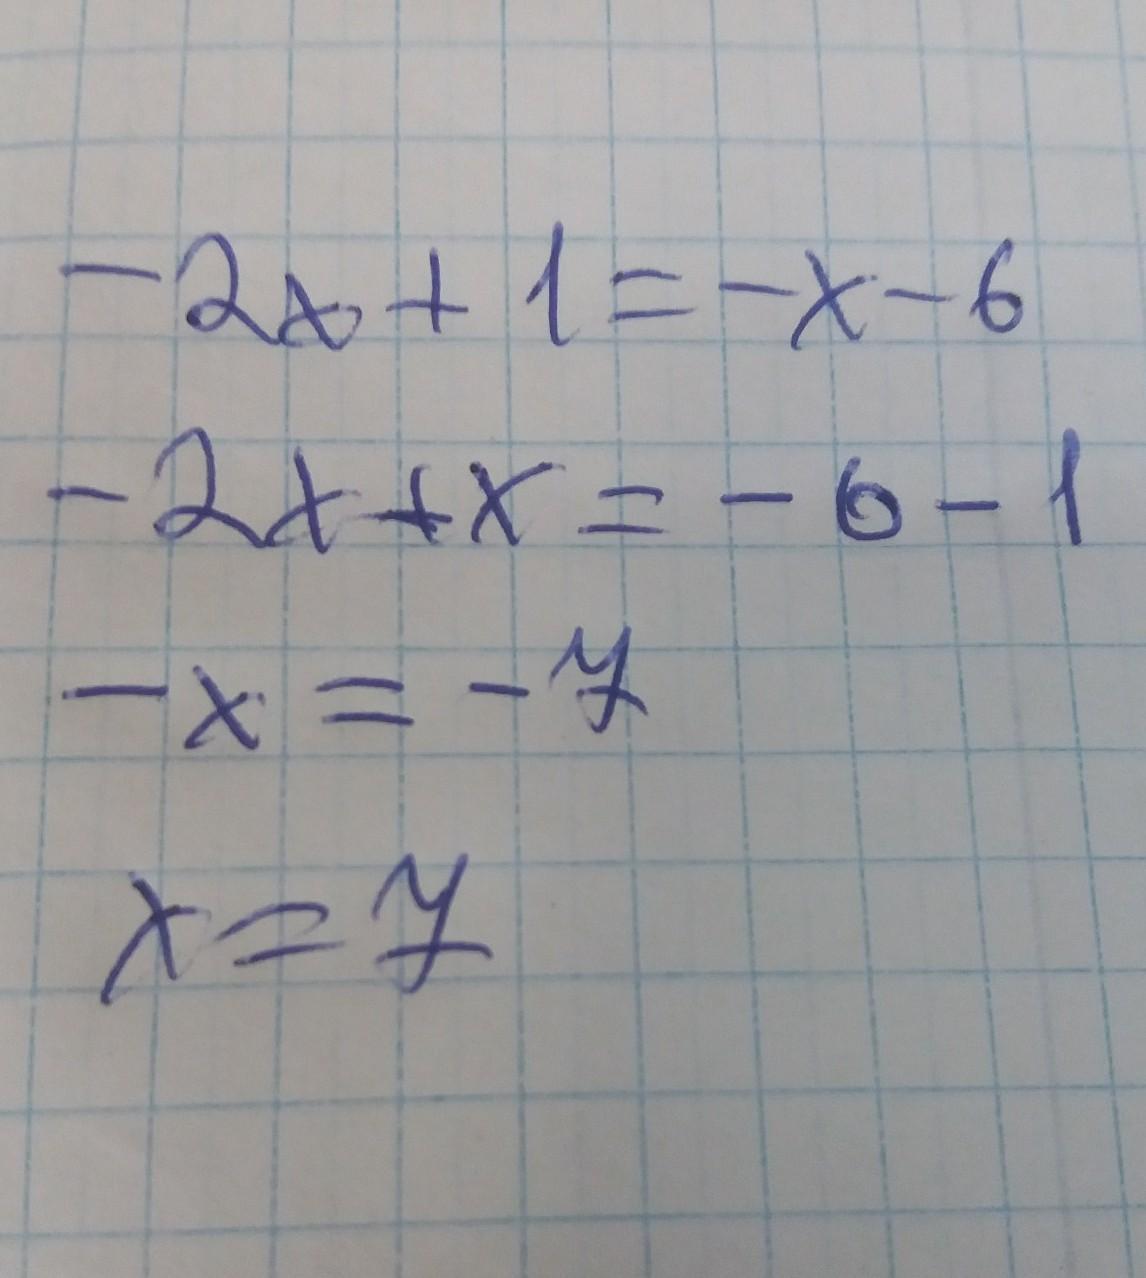 -2x+1=-x-6
-2x+x=-6-1
-x=-7
x=7